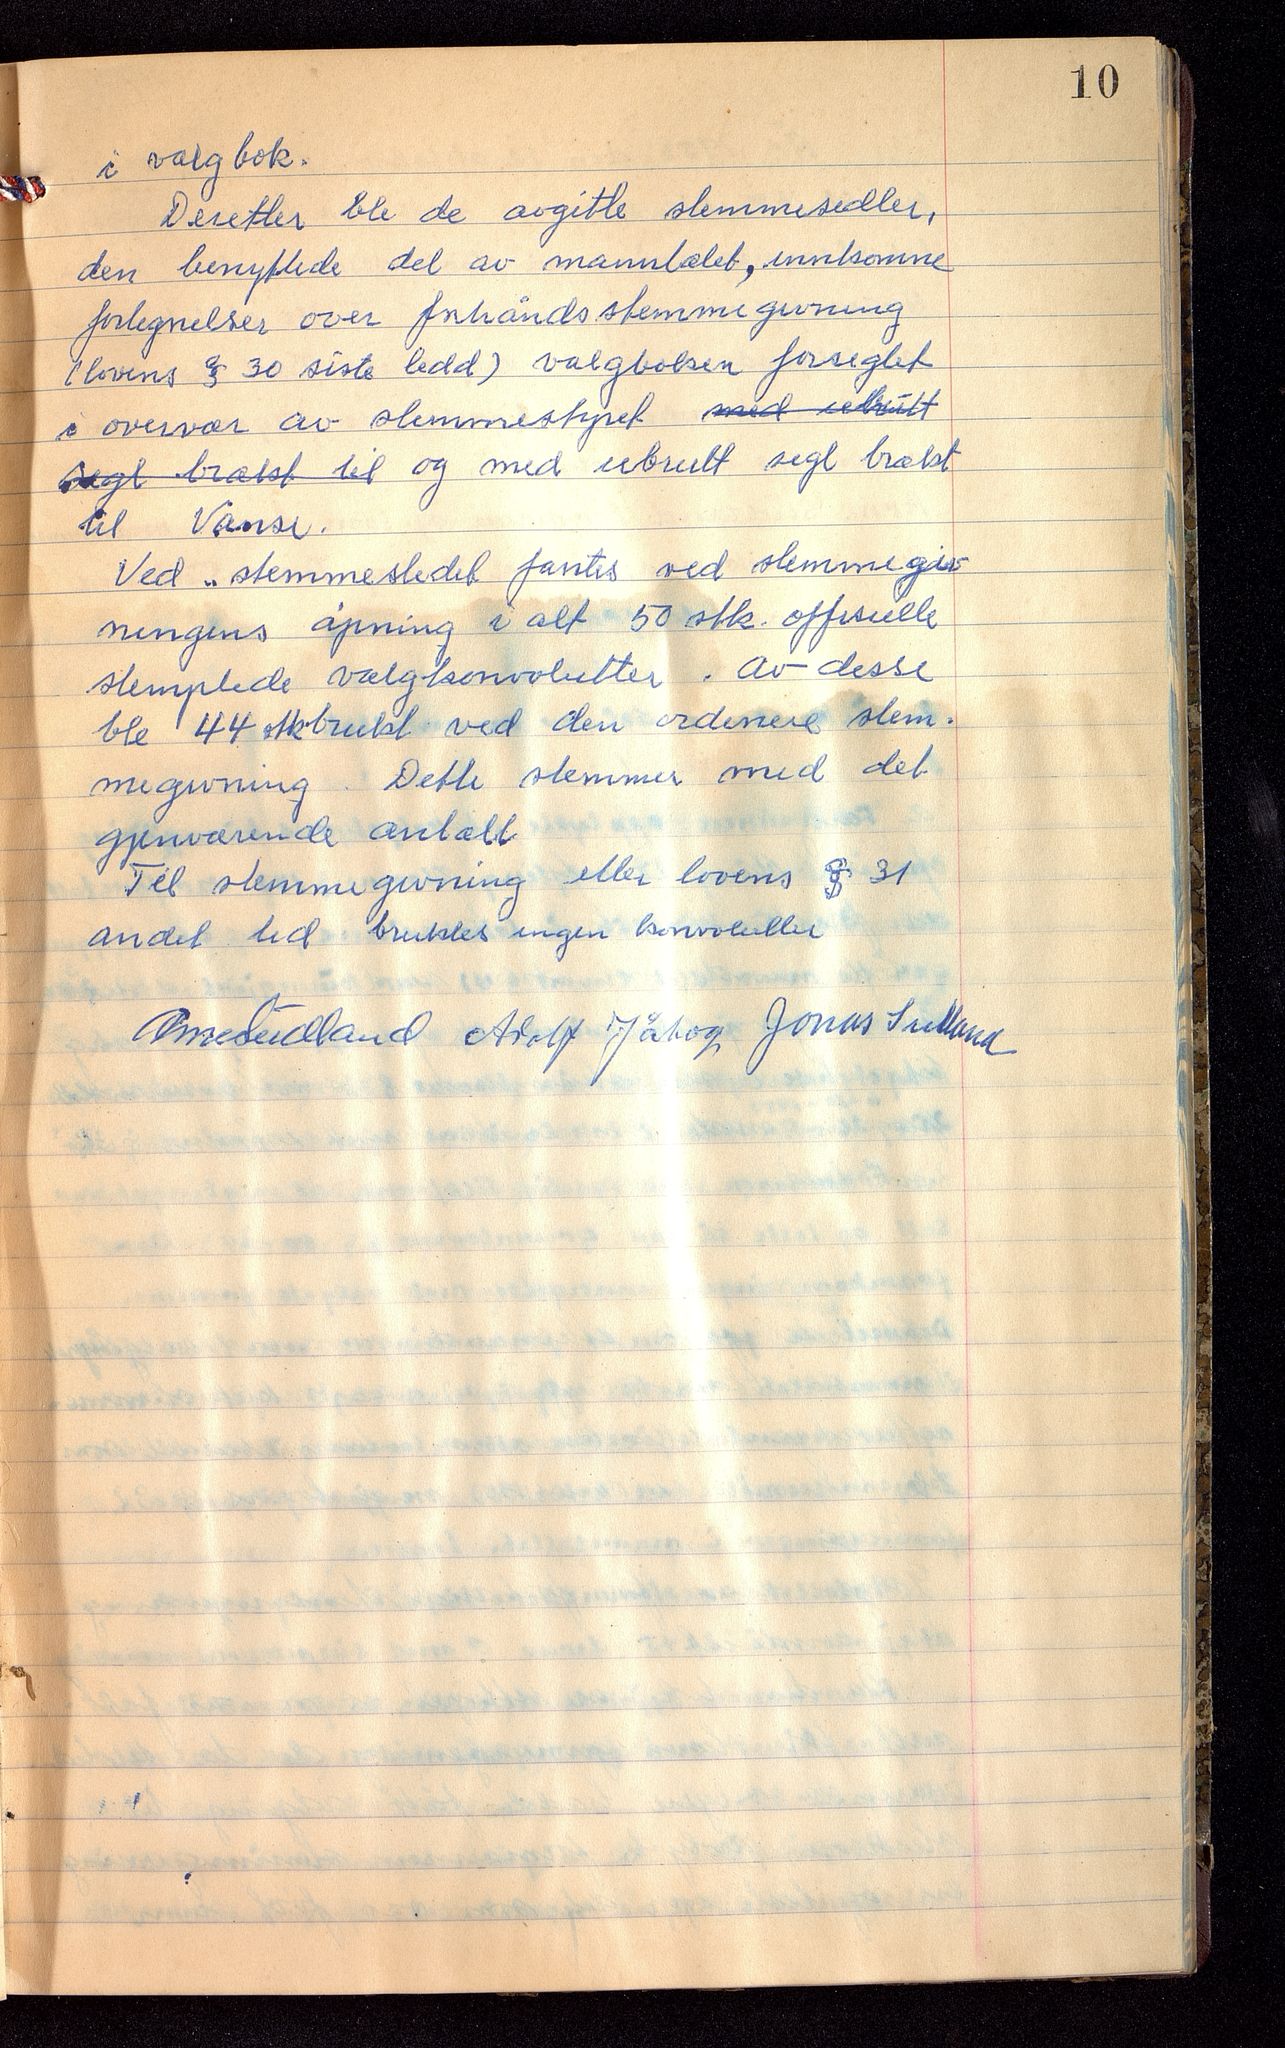 10
i valgbok.
Deretter ble de avgitte stemmesedler,
den benyttede del av manntalet, innkomne
fortegnelser over forhåndsstemmegivning
(lovens § 30 siste ledd) valgboken forseglet
i overvær av stemmestyret med ubrutt
segl brakt til og med ubrutt segl brakt
til Vanse.
Ved stemmestedet fantes ved stemmegiv
ningens åpning i alt 50 stk. offisielle
stemplede valgkonvolutter. Av desse
ble 44 stk brukt ved den ordinære stem-
megivning. Dette stemmer med det
gjenværende antall
Til stemmegivning etter lovens § 31
andet led bruktes ingen konvolutter
Sudland Adolf Jonas Sudland